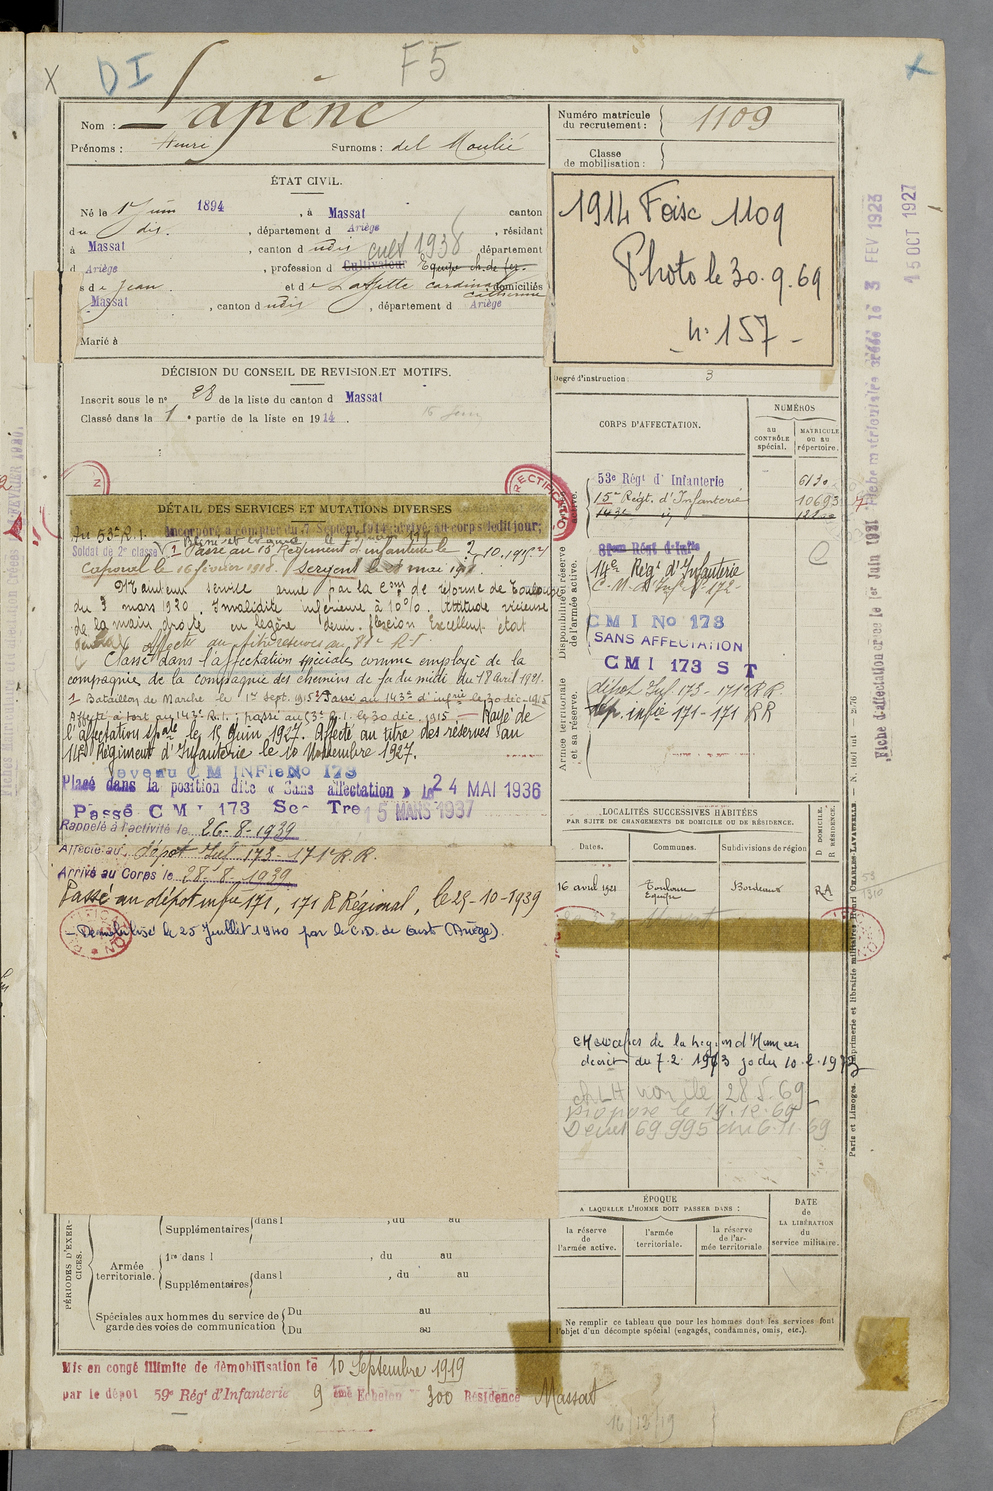 X DI F5 X
Nom : Lapène
Prénoms : Henri Surnoms : del Moulié
Numéro matricule du recrutement : 1109
Classe de mobilisation :
ÉTAT CIVIL.
Né le 1er Juin 1894, à Massat canton
du dit., département d Ariège, résidant
à Massat, canton d udit cult 1938 département
d Ariège, profession d Cultivateur Equipe ch. de fer.
fils de Jean et de Laffille Cardinal Catherine domiciliés
Massat, canton d udit, département d Ariège
Marié à
1914 Foix 1109
Photo le 30.9.69
n° 157 -
DÉCISION DU CONSEIL DE REVISION ET MOTIFS.
Inscrit sous le no 28 de la liste du canton d Massat
Classé dans la 1 e partie de la liste en 1914.
Degré d'instruction : 3
CORPS D'AFFECTATION.
NUMÉROS
AU CONTRÔLE spécial.
MATRICULE OU AU répertoire.
53e Régt d'Infanterie
15e Régt. d'Infanterie 10693
14e Rég. d'Infanterie
CMI No 173
SANS AFFECTATION
CMI 173 S T
dépôt Inf 173 - 171e R.R.
dép. infie 171 - 171 RR
Disponibilité et réserve de l'armée active.
Armée territoriale et sa réserve.
RECTIFICATION
DÉTAIL DES SERVICES ET MUTATIONS DIVERSES
Au 53e R.I. Incorporé à compter du 7 Septem. 1914, arrivé au corps ledit jour,
Soldat de 2e classe Passé au 15e Régiment d'infanterie le 2.10.1915
Caporal le 16 février 1918. Sergent le mai 1918.
Maintenu service armé par la Com de réforme de Toulouse
du 3 mars 1920. Invalidité inférieure à 10%. Attitude vicieuse
de la main droite en légère demi-flexion Excellent état
général
Classé dans l'affectation spéciale comme employé de la
compagnie de la compagnie des chemins de fer du midi du 18 avril 1921.
Bataillon de Marche le 1er Sept. 1915 Passé au 143e d'infrie le 30 déc. 1915
Affecté à tort au 143e R.I. ; passé au 53e R.I. le 30 déc. 1915. — Rayé de
l'affectation spale le 15 Juin 1927. Affecté au titre des réserves au
14e Régiment d'Infanterie le 1e Novembre 1927.
devenu CM INFie No 173
Placé dans la position dite « Sans affectation » le 24 MAI 1936
Passé CMI 173 Sc- Tre 15 MARS 1937
Rappelé à l'activité le 26-8-1939
Affecté au dépôt Inf 173 - 171e R.R.
Arrivé au Corps le 28-8-1939
Passé au dépôt infie 171, 171 R Régional, le 29-10-1939
- Démobilisé le 25 Juillet 1940 par le C.D. de Oust (Ariège).
LOCALITÉS SUCCESSIVES HABITÉES
PAR SUITE DE CHANGEMENTS DE DOMICILE OU DE RÉSIDENCE.
Dates. Communes. Subdivisions de région D DOMICILE. R RÉSIDENCE.
16 avril 1921 Toulouse Equipe Bordeaux RA
Chevalier de la Légion d'Honneur
décret du 7.2.1973 jo du 10.2.1973
Ch LH non le 28.5.69
Proposé le 19.12.69
Décret 69.995 du 6.11.69
ÉPOQUE
A LAQUELLE L'HOMME DOIT PASSER DANS :
la réserve de l'armée active.
l'armée territoriale.
la réserve de l'armée territoriale
DATE DE LA LIBÉRATION du service militaire.
Ne remplir ce tableau que pour les hommes dont les services font
l'objet d'un décompte spécial (engagés, condamnés, omis, etc.).
PÉRIODES D'EXERCICES.
Supplémentaires dans l , du au
Armée territoriale. 1re dans l , du au
Supplémentaires dans l , du au
Spéciales aux hommes du service de garde des voies de communication Du au
Du au
Mis en congé illimité de démobilisation le 10 Septembre 1919
par le dépôt 59e Régt d'Infanterie 9 ème Echelon n° 300 Résidence Massat
16/12/19
Fiche d'affectation créée le 1er Juin 1921
Fiche matriculaire créée le 3 FEV 1923
15 OCT 1927
Paris et Limoges. — Imprimerie et librairie militaires Henri CHARLES-LAVAUZELLE